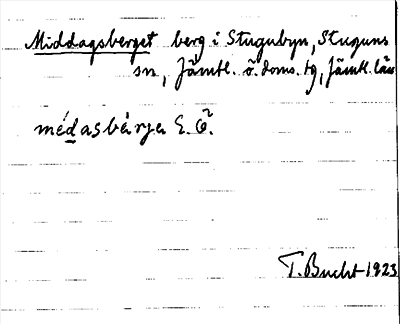 Middagsberget berg i Stugubyn, Stuguns
sn, Jämtl. ö. doms. tg, Jämtl. län
médasbárja E. Ö.
T. Bucht 1923